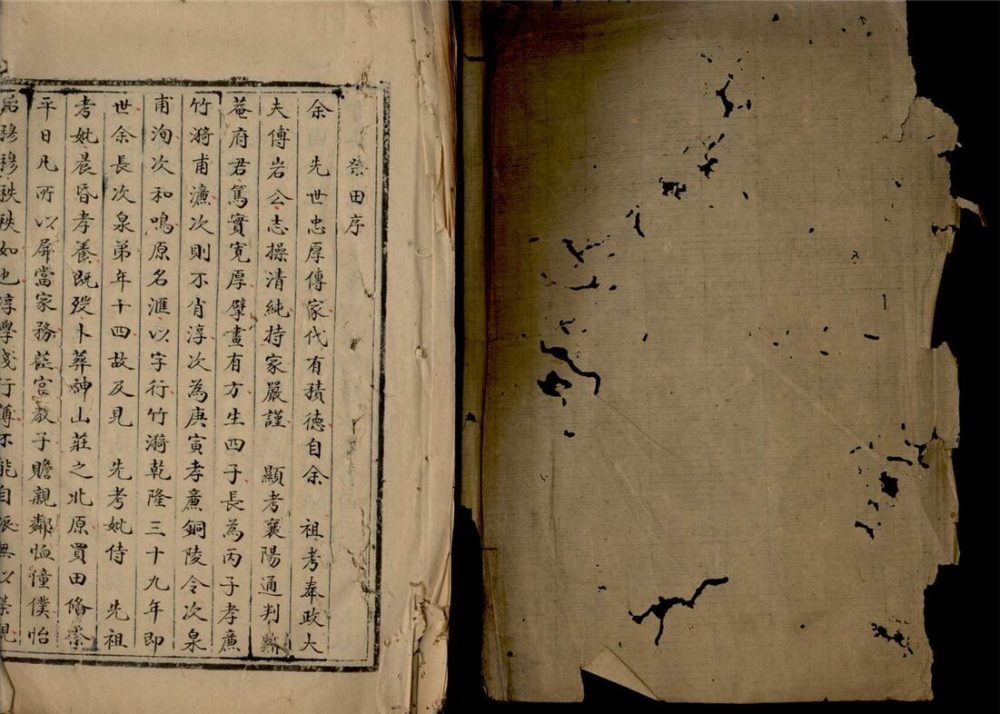 祭田序
余　先世忠厚傳家代有積德自余　祖考奉政大
夫傅岩公志操清純持家嚴謹　顯考襄陽通判
菴府君篤實寬厚擘畫有方生四子長為丙子孝廉
竹漪甫濂次則不肖淳次為庚寅孝廉銅陵令次泉
甫洵次和鳴原名滙以字行竹漪乾隆三十九年即
世余長次泉弟年十四故及見　先考妣侍　先祖
考妣晨昏孝養既歿卜葬神山莊之北原買田脩祭
平日凡所以屏當家務莅官教子贍親鄰恤僮僕怡
穆穆秩秩如也淳學淺行薄不能自振無以